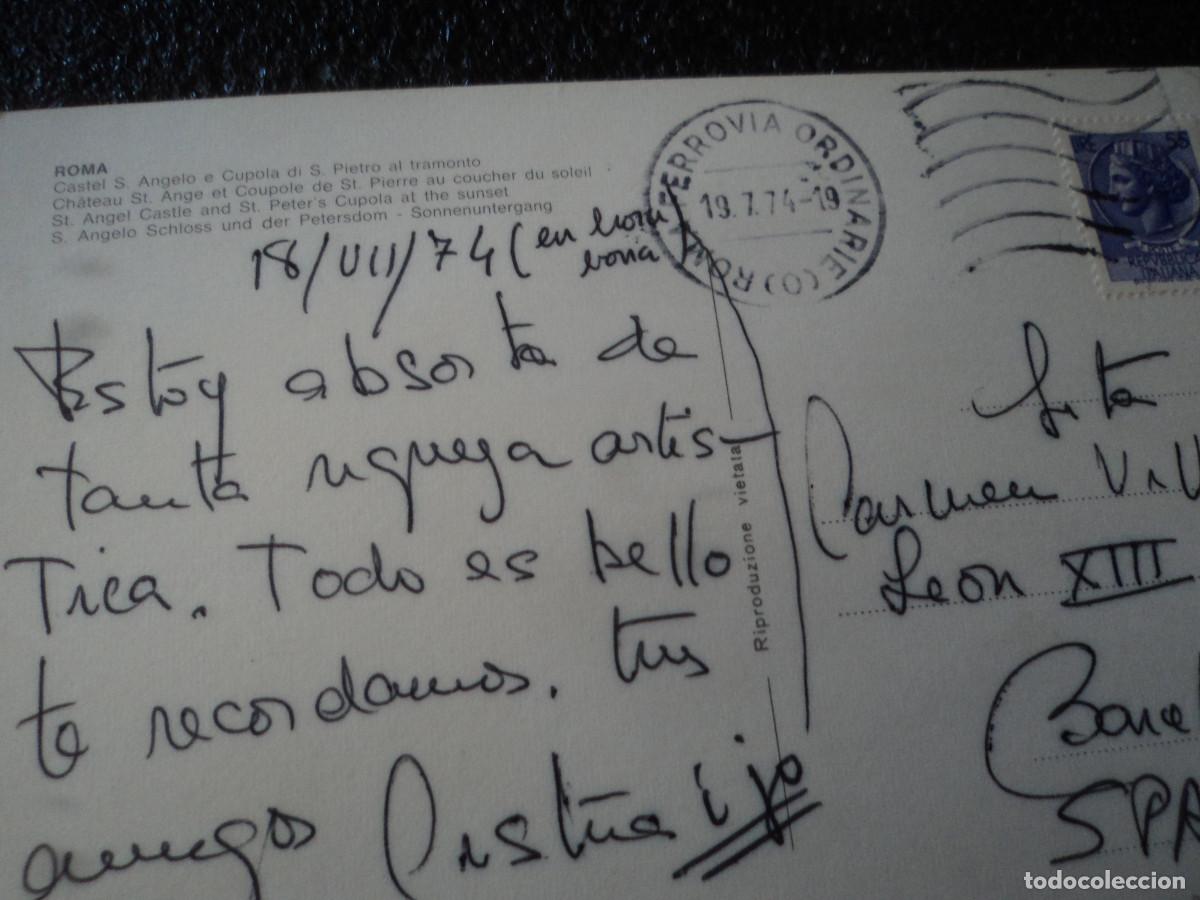 ROMA
Castel S. Angelo e Cupola di S. Pietro al tramonto
Château St. Ange et Coupole de St. Pierre au coucher du soleil
St. Angel Castle and St. Peter's Cupola at the sunset
S. Angelo Schloss und der Petersdom - Sonnenuntergang
18/VII/74 (en
Estoy absorta de
tanta riqueza artis-
tica. Todo es bello
te recordamos. tus
amigos Cristina i jo
Riproduzione vietata
FERROVIA ORDINARIE (O) ROMA
19.7.74-19
LIRE 55
REPUBBLICA
ITALIANA
Srta
Carmen Vil
León XIII
Barcel
SPA
todocoleccion